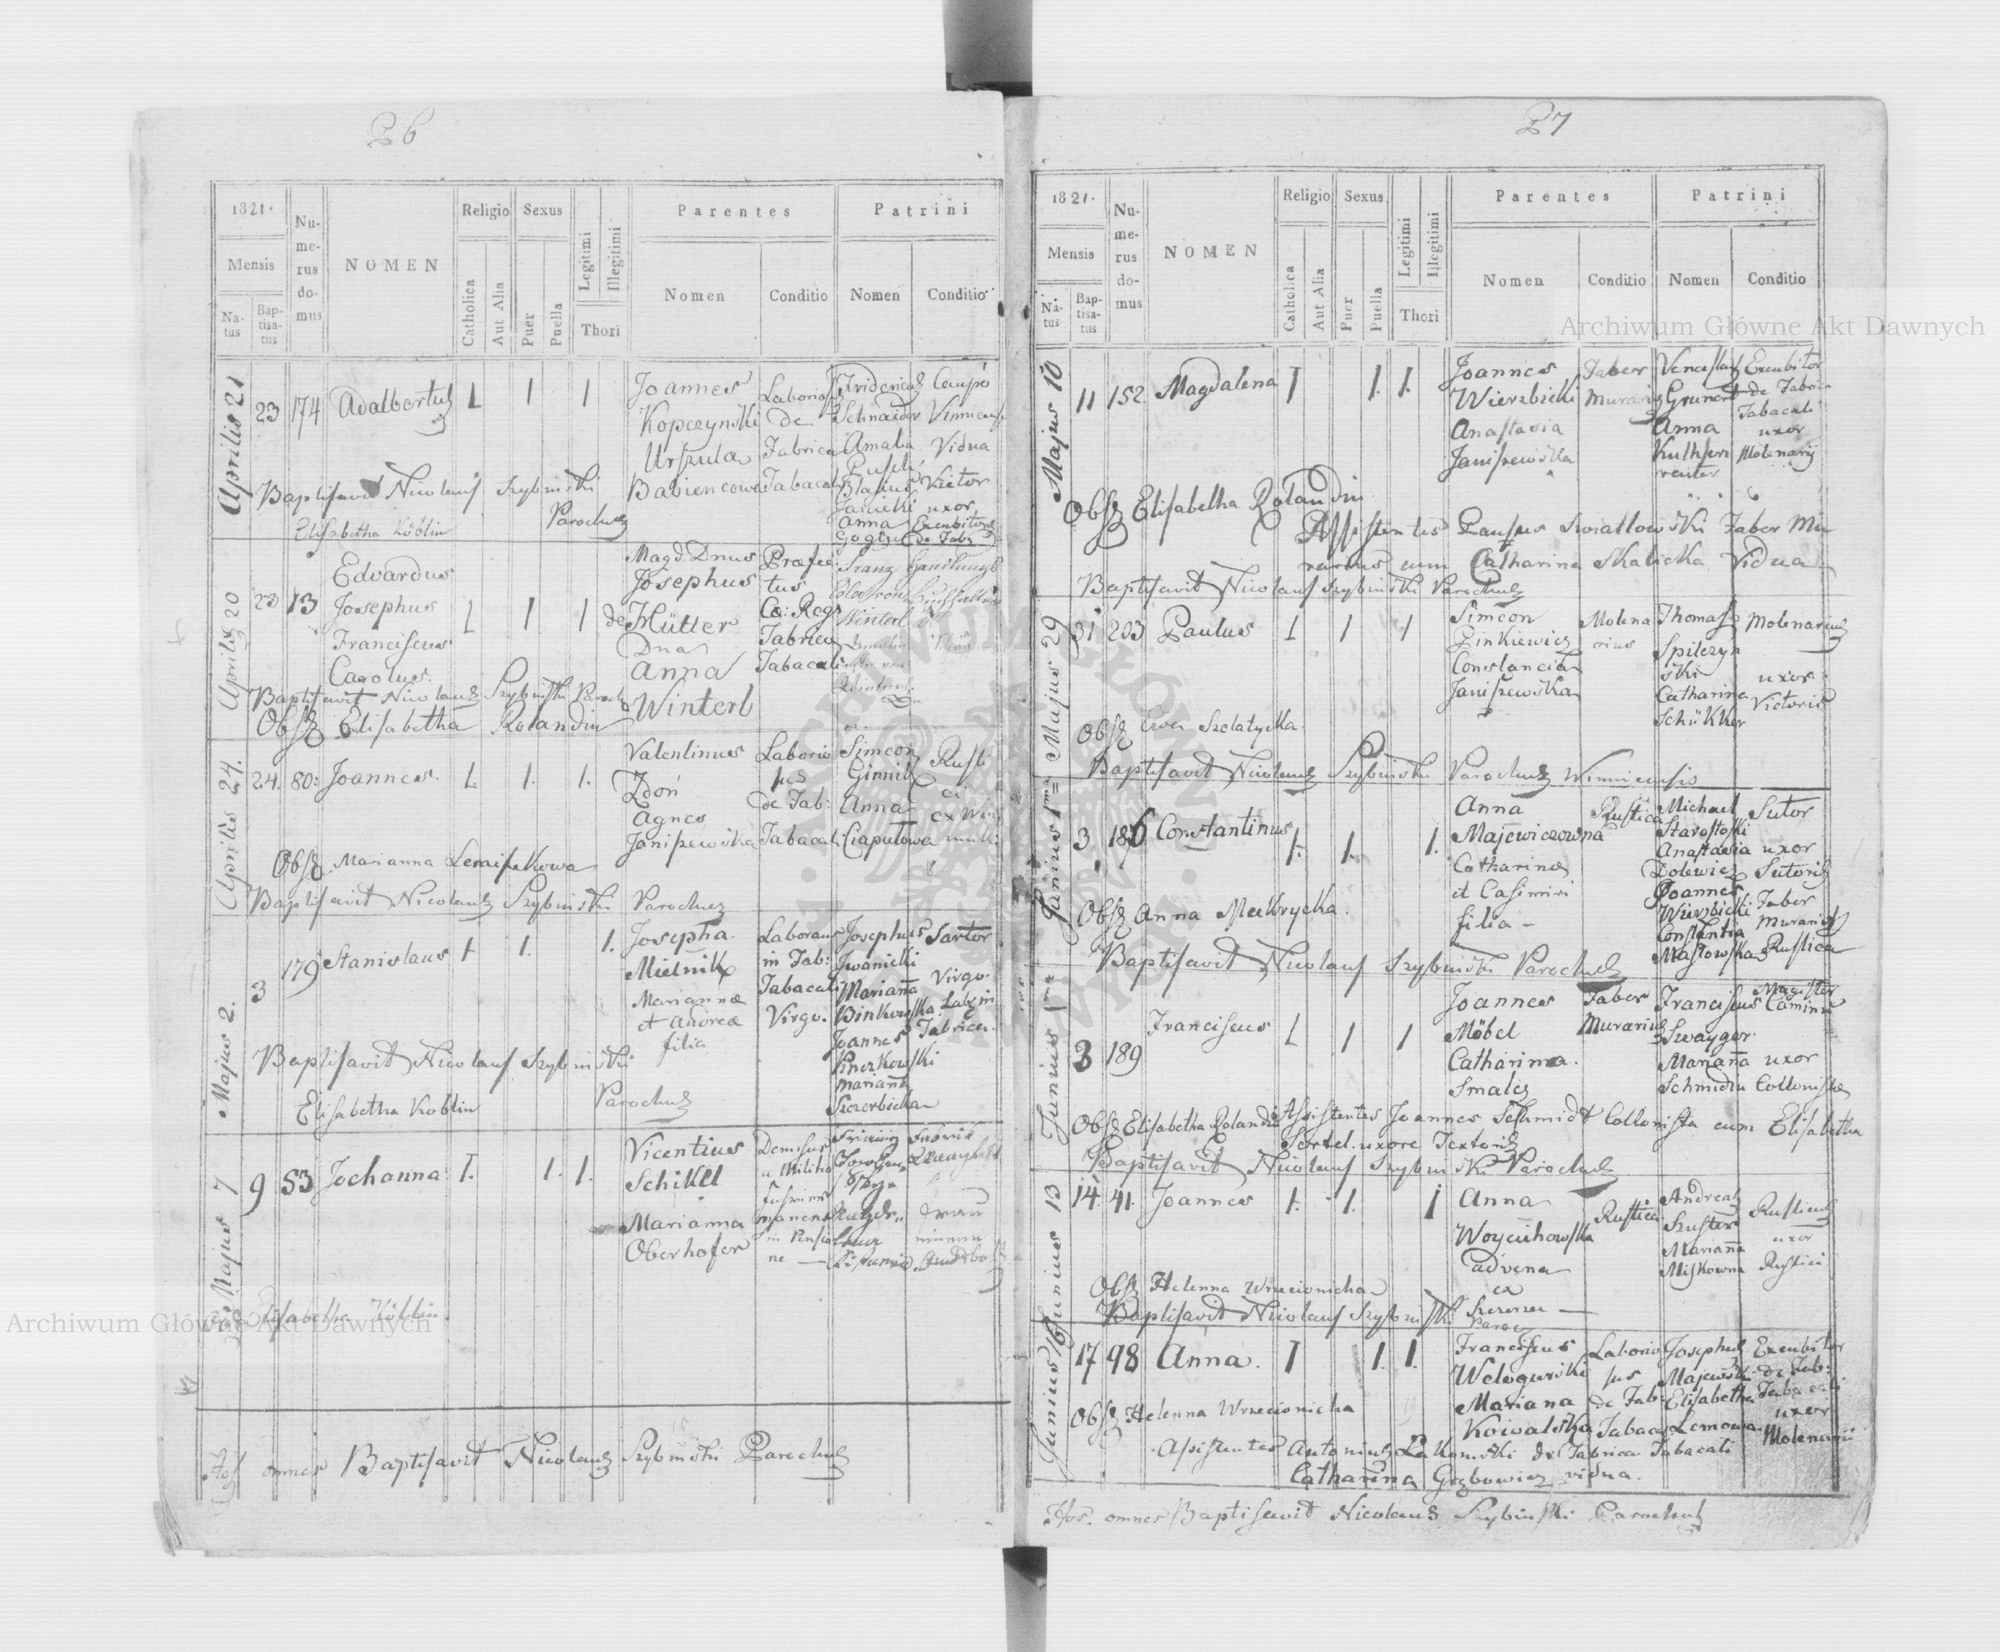 26
1821.
Mensis
Na-
tus
Bap-
tisa-
tus
Nu-
me-
rus
do-
mus
NOMEN
Religio
Catholica
Aut Alia
Sexus
Puer
Puella
Legitimi
Illegitimi
Thori
Parentes
Nomen
Conditio
Patrini
Nomen
Conditio
Aprilis 21
23 174 Adalbertus 1 1 1
Joannes
Kopczynski
Urszula
Babiencowa
Laborios
de
Fabrica
Tabacali
Fridericus
Schnaider
Amalia
Blasius
Janicki
Anna
Vidua
Victor
uxor
Exenbitoris
de Fabr
Baptisavit Nicolaus Szybinski
Parochus
Elisabetha Köblin
Aprilis 20
23 13
Edvardus
Josephus
Franciscus
Carolus.
1 1 1
Magd. Dnus
Josephus
de Hütter
Dna
Anna
Winterl
Præfec
tus
Cæ: Reg:
Fabrica
Tabacali
Franz
Winterl
Baptisavit Nicolaus Szybinski Paroch
Obst Elisabetha Rolandin
Aprilis 24.
24. 80: Joannes. 1. 1. 1.
Valentinus
Zdoń
Agnes
Janiszewska
Laborio
sus
de Fab:
Tabacali
Simeon
Anna
Ciaputowa
Rusti
ci
Obst Marianna
Baptisavit Nicolaus Szybinski Parochus
Majus 2.
3 179 Stanislaus 1 1. 1.
Josepha
Mielnik
Mariannæ
et Andreæ
filia
Laborans
in Fab:
Tabacali
Virgo.
Josephus
Iwanicki
Marianna
Binkowska
Joannes
Pinczkowski
Marianna
Szczerbicka
Sartor
Virgo.
Lab. in
Fabrica.
Baptisavit Nicolaus Szybinski
Parochus
Elisabetha Koblin
Majus 7
9 53 Johanna 1. 1. 1.
Vicentius
Schikel
Marianna
Oberhofer
Demisus
a Militia
in Pensio
ne
Obst Elisabetha Köblin.
Hos omnes Baptisavit Nicolaus Szybinski Parochus
27
1821.
Mensis
Na-
tus
Bap-
tisa-
tus
Nu-
me-
rus
do-
mus
NOMEN
Religio
Catholica
Aut Alia
Sexus
Puer
Puella
Legitimi
Illegitimi
Thori
Parentes
Nomen
Conditio
Patrini
Nomen
Conditio
Majus 10
11 152. Magdalena 1 1. 1.
Joannes
Wierzbicki
Anastasia
Janiszewska
Faber
Murarius
Venceslaus
Grunert
Anna
Exenbitor
de Fabrica
Tabacali
uxor
Molenarij
Obst Elisabetha Rolandin
Assistentes Paulus Swiatłowski Faber Mu
rarius cum Catharina Skalicka Vidua
Baptisavit Nicolaus Szybinski Parochus
Majus 29
31 203 Paulus 1 1 1
Simeon
Pinkiewicz
Constancia
Janiszewska
Molena
rius
Thomas
Spilczyn
ski
Catharina
Schükker
Molenarius
uxor
Victoris
Obst Ewa Szelatycka.
Baptisavit Nicolaus Szybinski Parochus Winnicensis
Junius 1ma
3 186 Constantinus 1. 1. 1.
Anna
Majewiczowna
Catharinæ
et Casimiri
filia
Rustica
Michael
Starostoski
Anastasia
Dolewicz
Joannes
Wierzbicki
Constantia
Masłowska
Sutor
uxor
Sutoris
Faber
Murarius
Rustica
Obst Anna Mewrycka.
Baptisavit Nicolaus Szybinski Parochus
Junius 1ma
3 189 Franciscus 1 1 1
Joannes
Möbel
Catharina.
Smalcz
Faber
Murarius
Franciscus
Swayger
Marianna
Schmidtin
Magister
Camini
uxor
Collonistæ
Obst Elisabetha Rolandin Assistentes Joannes Schmidt Collonista cum Elisabetha
Sertel uxore Textoris
Baptisavit Nicolaus Szybinski Parochus
Junius 13
14. 41. Joannes 1. 1. 1
Anna
Woyciuchowska
advena
ex
Szczerzec
Rustica
Andreas
Szuster
Marianna
Miskowna
Rusticus
uxor
Rustici
Obst Helenna Wrzecionicha
Baptisavit Nicolaus Szybinski Paroch
Junius 16
17 98 Anna. 1 1. 1.
Franciscus
Welogurski
Mariana
Kowalska
Laborio
sus
de Fab:
Tabacali
Josephus
Majewski
Elisabetha
Lemowa
Exenbitor
de Fab:
Tabacali
uxor
Molenarii
Obst Helenna Wrzecionicha
Assistentes Antonius Lakomski de Fabrica Tabacali
Catharina Grzbowicz vidua.
Hos. omnes Baptisavit Nicolaus Szybinski Parochus
Archiwum Główne Akt Dawnych
Archiwum Główne Akt Dawnych
ARCHIWUM GŁÓWNE AKT DAWNYCH